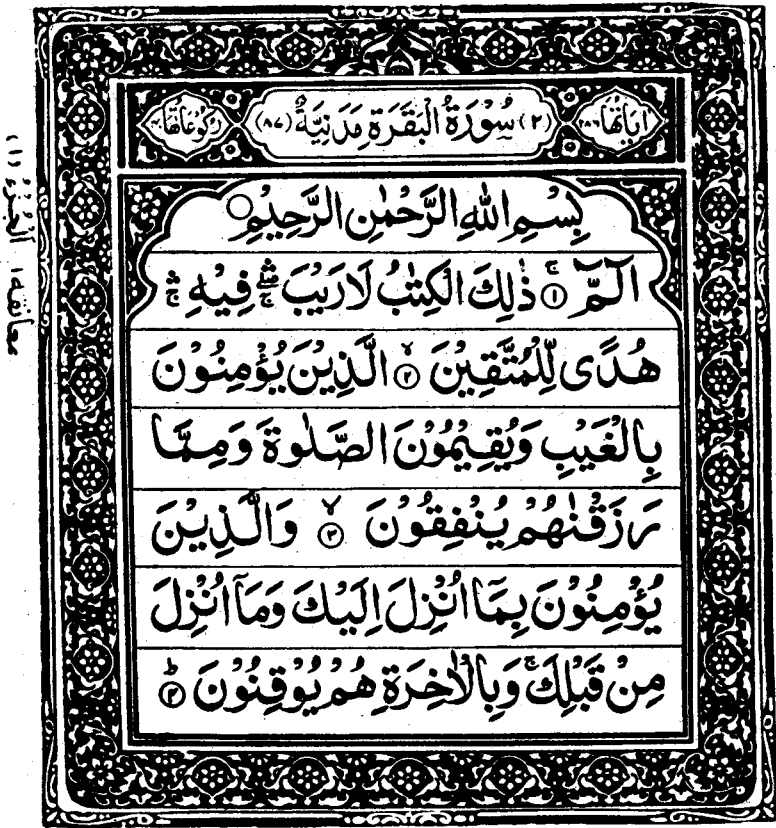 اٰيَاتُهَا ٢٨٦ (٢) سُوْرَةُ الْبَقَرَةِ مَدَنِيَّةٌ (٨٧) رُكُوْعَاتُهَا
بِسْمِ اللّٰهِ الرَّحْمٰنِ الرَّحِيْمِ
الٓمّٓ ۚ ١ ذٰلِكَ الْكِتٰبُ لَا رَيْبَ ۛۚ فِيْهِ ۛۚ
هُدًى لِّلْمُتَّقِيْنَ ۙ ٢ الَّذِيْنَ يُؤْمِنُوْنَ
بِالْغَيْبِ وَيُقِيْمُوْنَ الصَّلٰوةَ وَمِمَّا
رَزَقْنٰهُمْ يُنْفِقُوْنَ ۙ ٣ وَالَّذِيْنَ
يُؤْمِنُوْنَ بِمَآ اُنْزِلَ اِلَيْكَ وَمَآ اُنْزِلَ
مِنْ قَبْلِكَ ۚ وَبِالْاٰخِرَةِ هُمْ يُوْقِنُوْنَ ؕ ٤